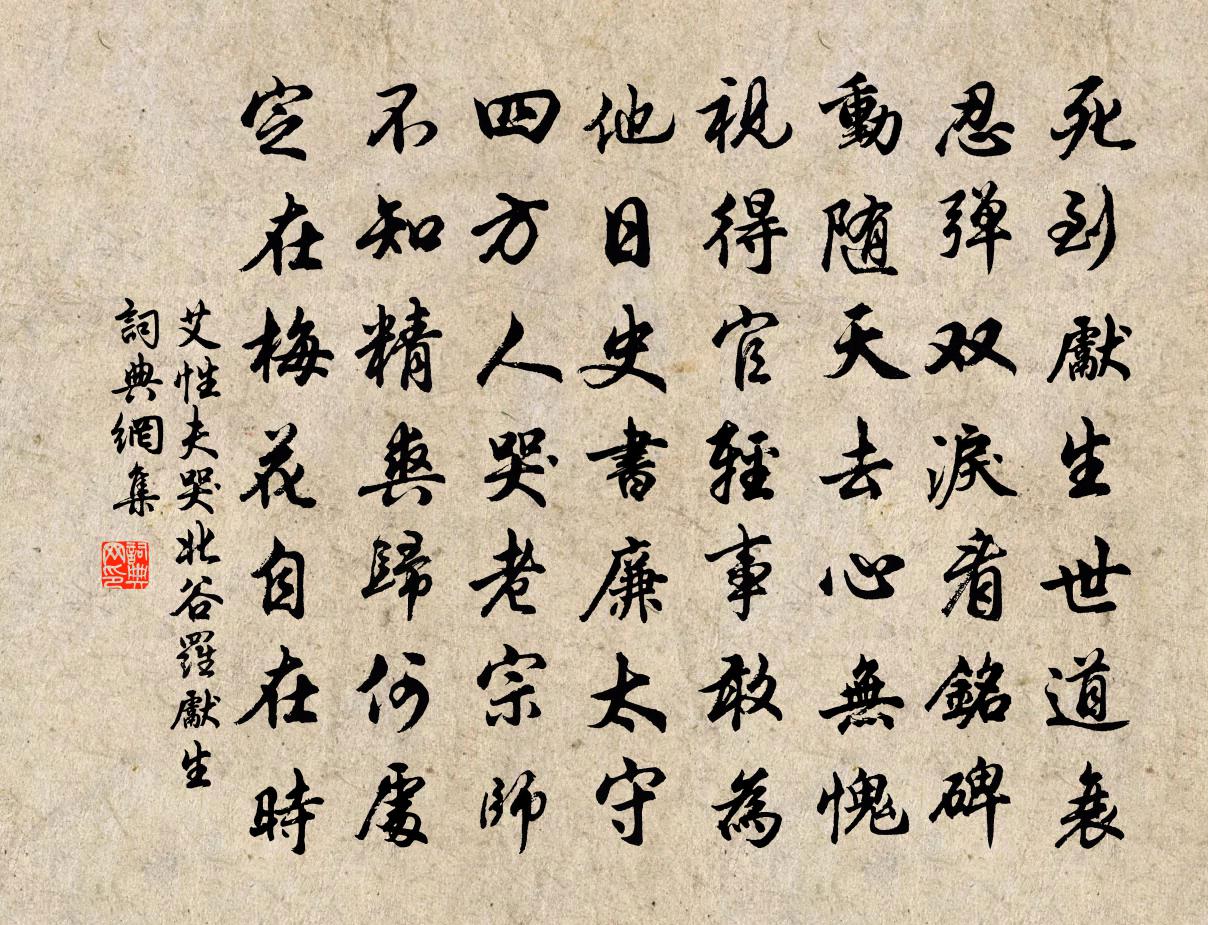 死到獻生世道衰
忍弹双淚看銘碑
動随天去心無愧
視得官輕事敢為
他日史書廉太守
四方人哭老宗師
不知精爽歸何處
定在梅花自在時
艾性夫哭北谷羅獻生
詞典網集
詞典
网印